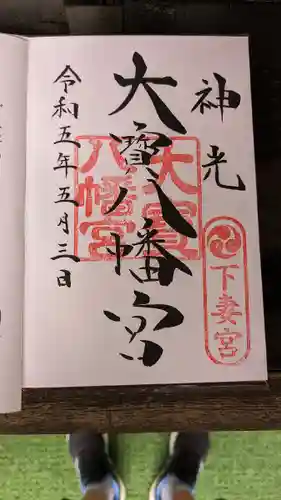 神光
大寳八幡宮
令和五年五月三日
大寳
八幡宮
下妻宮